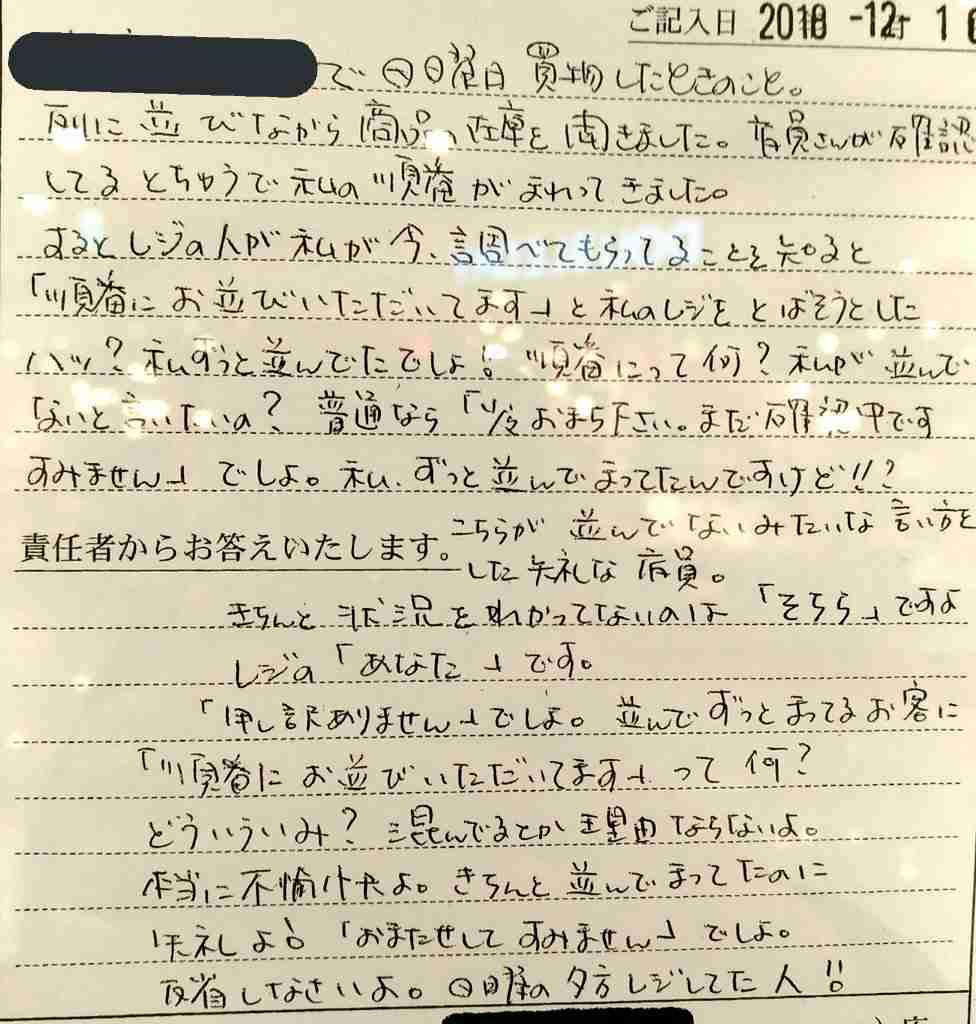 ご記入日 2018 -12- 1
で日曜日買物したときのこと。
列に並びながら商品の在庫を聞きました。店員さんが確認
してるとちゅうで私の順番がまわってきました。
するとレジの人が私が今、調べてもらってることを知ると
「順番にお並びいただいてます」と私のレジをとばそうとした
ハッ?私ずっと並んでたでしょ!順番にって何?私が並んで
ないと言いたいの?普通なら「少々おまち下さい。まだ確認中です
すみません」でしょ。私、ずっと並んでまってたんですけど!!?
こちらが並んでないみたいな言い方を
責任者からお答えいたします。
した失礼な店員。
きちんと状況をわかってないのは「そちら」ですよ
レジの「あなた」です。
「申し訳ありません」でしょ。並んでずっとまってるお客に
「順番にお並びいただいてます」って何?
どういういみ?混んでるとか理由ならないよ。
本当に不愉快よ。きちんと並んでまってたのに
失礼しよ!「おまたせしてすみません」でしょ。
反省しなさいよ。日曜の夕方レジしてた人!!